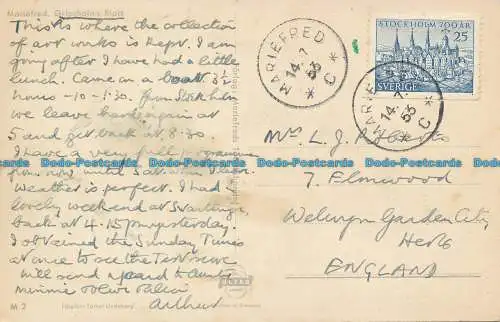 Mariefred. Gripsholms slott
This is where the collection
of art works is kept. I am
going after I have had a little
lunch. Came on a boat 3½
hours - 10 - 1.30. from Stockholm
we leave here again at
5 and get back at 8.30.
I have a very full programme
from now until Sat. when I leave
Weather is perfect. I had a
lovely weekend at
back at 4.15 pm yesterday.
I obtained the Sunday Times
at once to see the Test score
Will send a card to Aunty
Minnie
Arthur
M 2
MARIEFRED
14. 7
55
* C *
STOCKHOLM 700 ÅR
25
SVERIGE
MARIE
14. 7.
55
* C
Mrs. L. J.
7. Elmwood
Welwyn Garden City
Herts
ENGLAND
Postcards Postcards Postcards Postcards Postcards
ULTRA